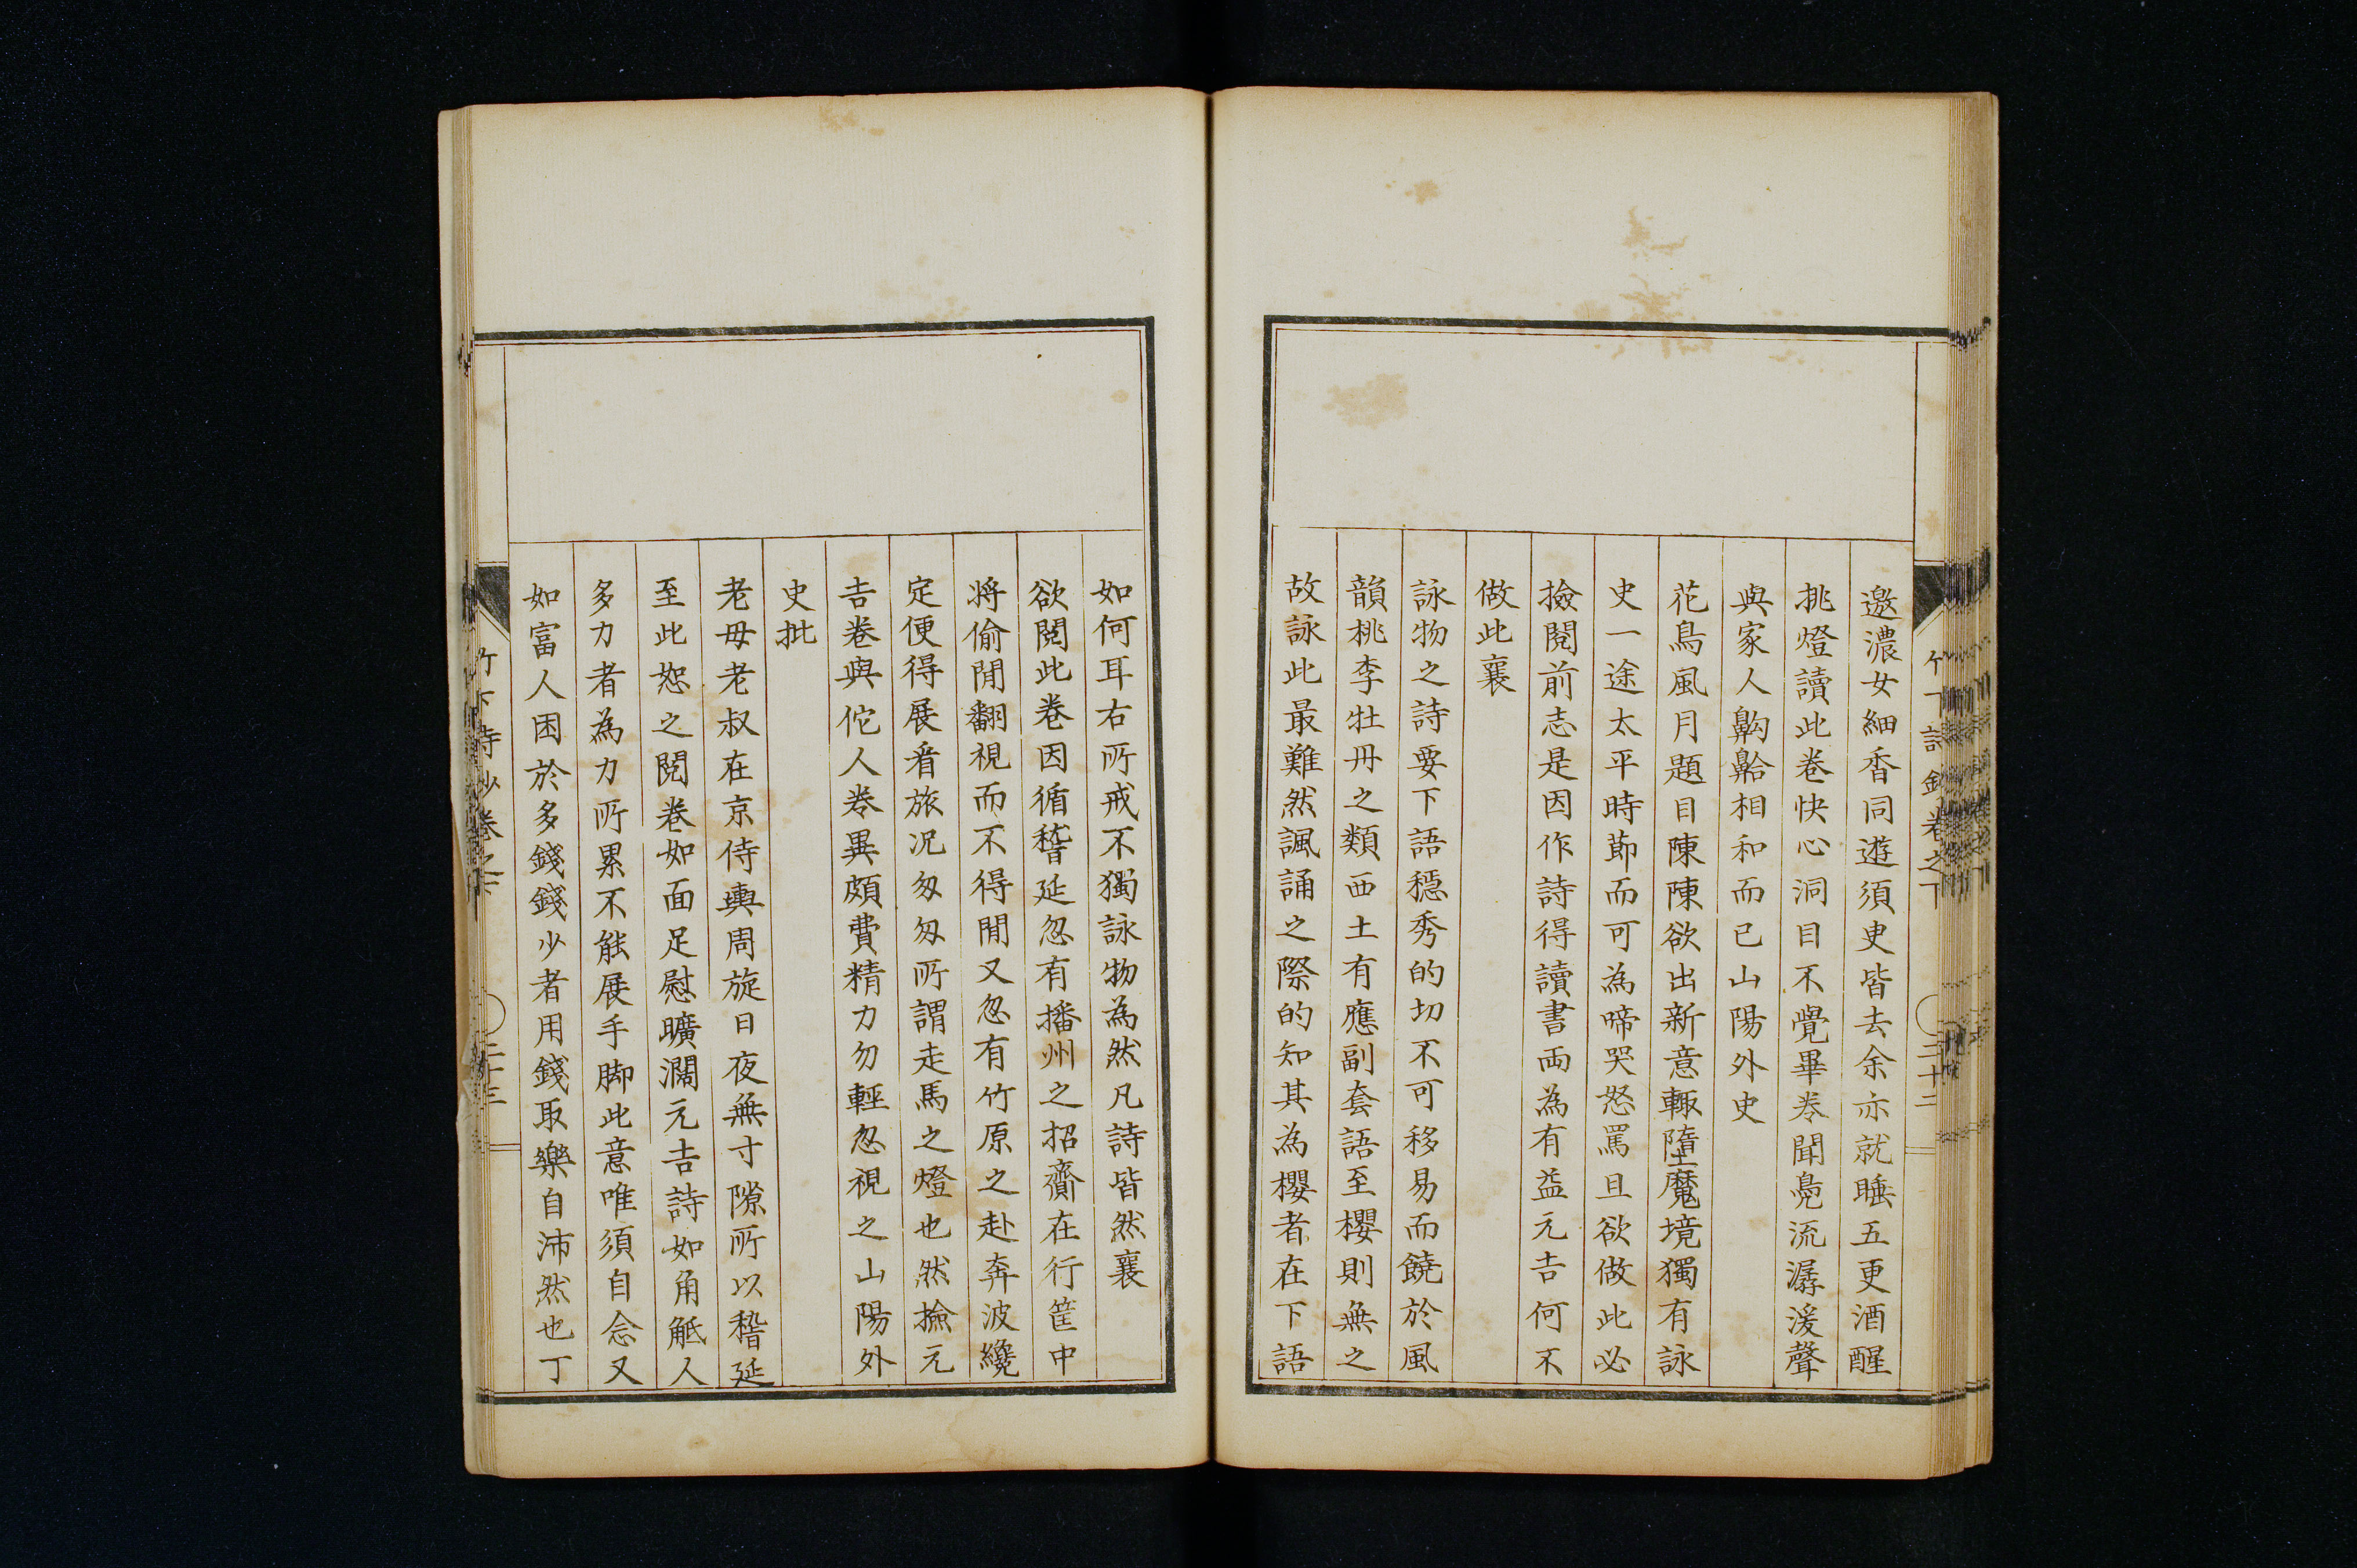 邀濃女細香同遊須臾皆去余亦就睡五更酒醒
挑燈讀此卷快心洞目不覺畢卷聞鳧流潺湲聲
與家人齁鮯相和而已山陽外史
花鳥風月題目陳陳欲出新意輙墮魔境獨有詠
史一途太平時節而可為啼哭怒罵且欲做此必
撿閱前志是因作詩得讀書両為有益元吉何不
做此襄
詠物之詩要下語穩秀的切不可移易而饒於風
韻桃李牡丹之類西土有應副套語至櫻則無之
故詠此最難然諷誦之際的知其為櫻者在下語
竹下詩鈔卷之下 二十二
如何耳右所戒不獨詠物為然凡詩皆然襄
欲閱此卷因循稽延忽有播州之招齎在行筐中
将偷閒翻視而不得閒又忽有竹原之赴奔波纔
定便得展看旅況匆匆所謂走馬之燈也然撿元
吉卷與佗人卷異頗費精力勿輕忽視之山陽外
史批
老母老叔在京侍輿周旋日夜無寸隙所以稽延
至此恕之閱卷如面足慰曠濶元吉詩如角觝人
多力者為力所累不能展手脚此意唯須自念又
如富人困於多錢錢少者用錢取樂自沛然也丁
竹下詩鈔卷之下 二十三